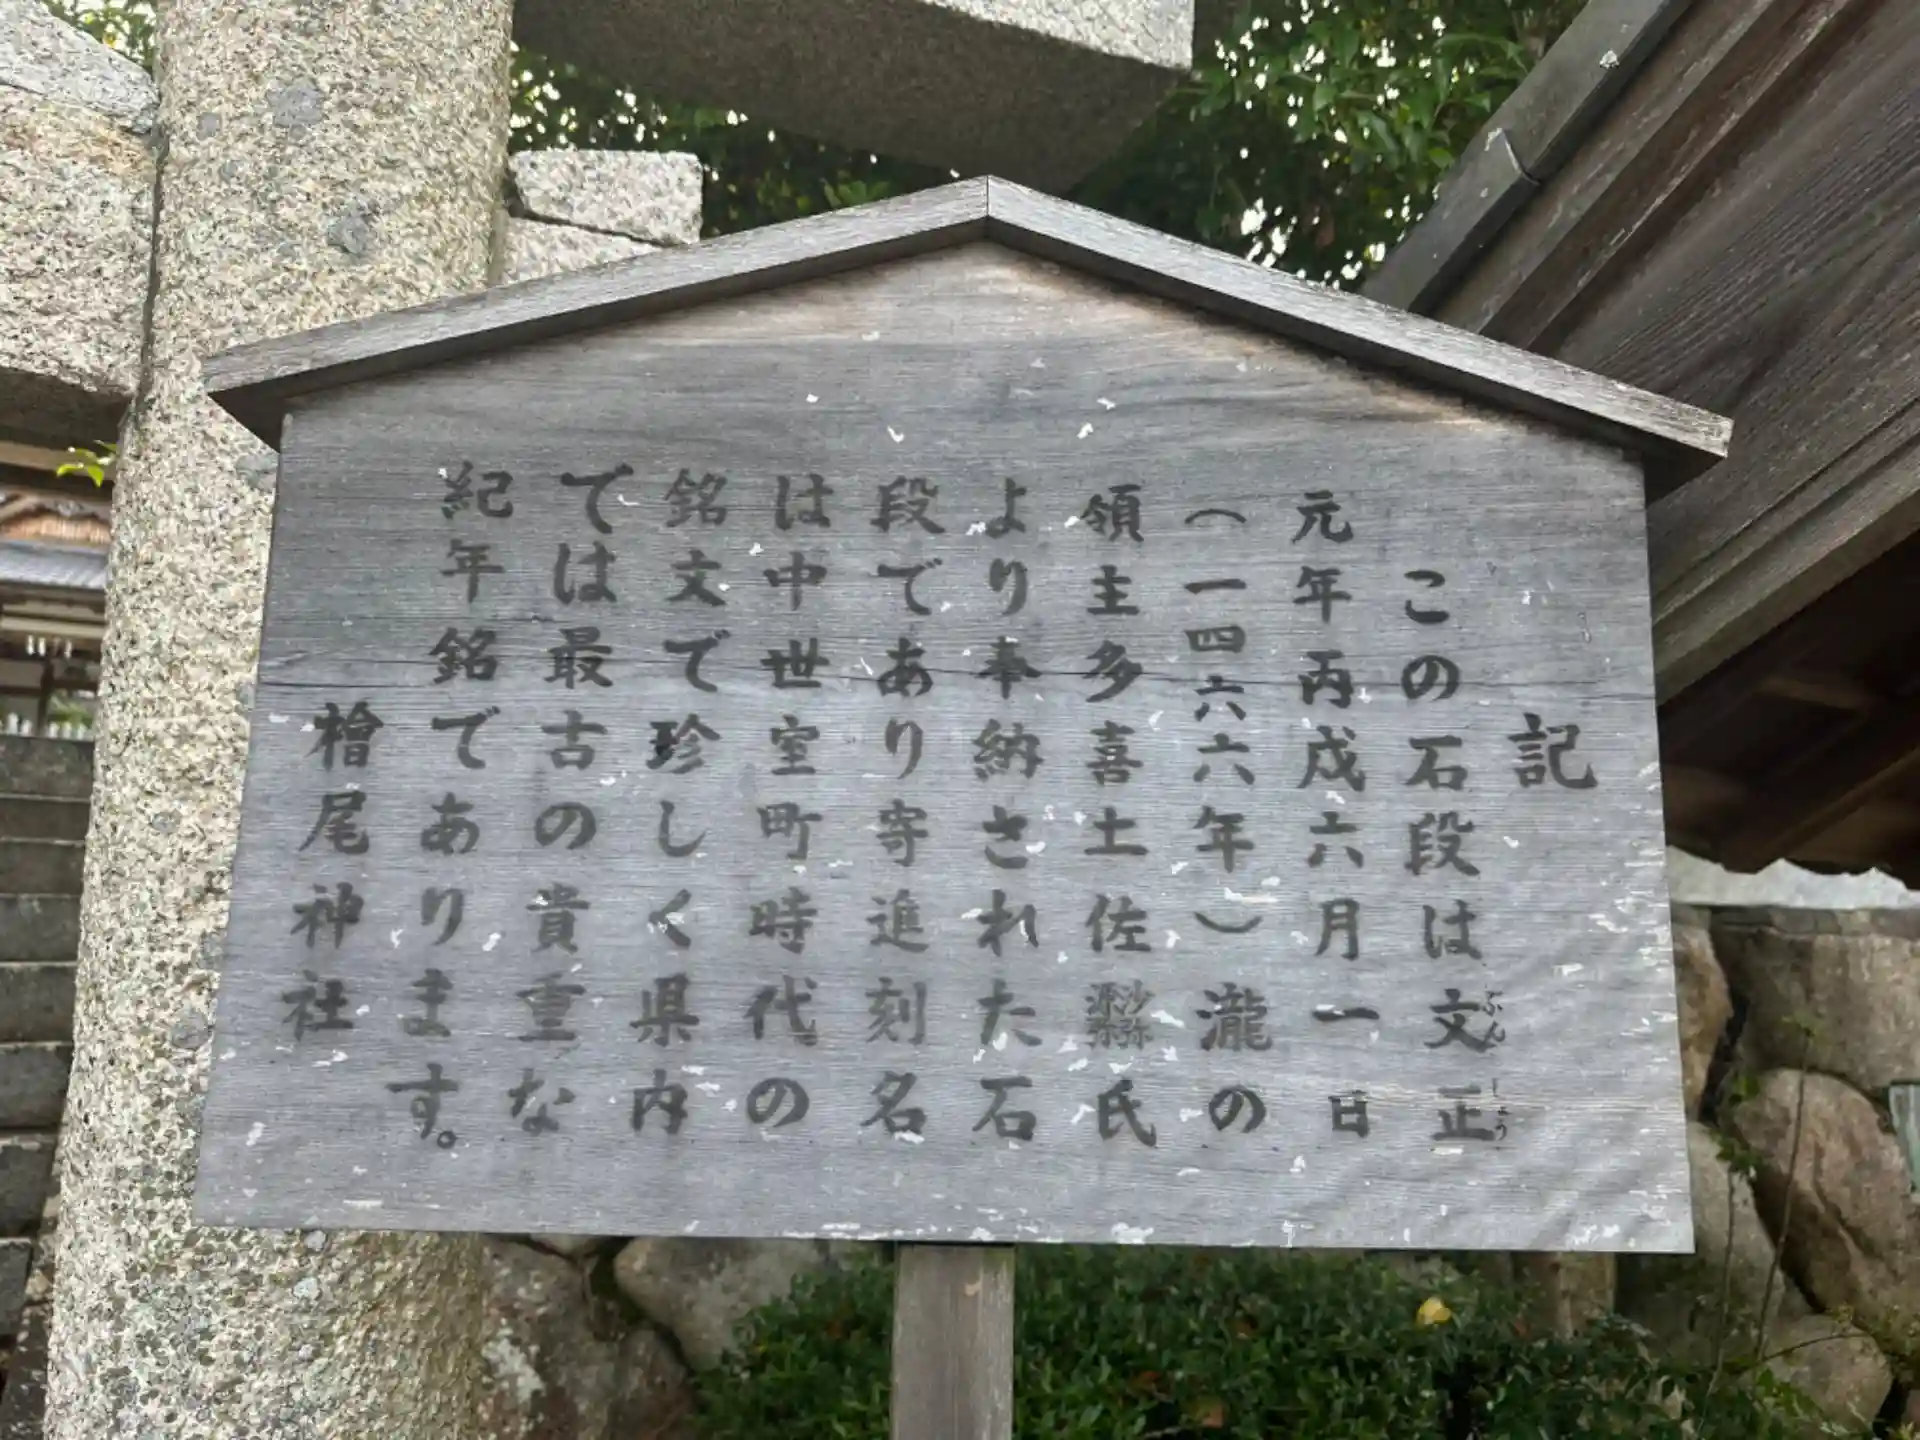 記
この石段は文正
ぶんしょう
元年丙戌六月一日
(一四六六年)瀧の
領主多喜土佐沙弥源弥氏
より奉納された石
段であり寄進刻名
は中世室町時代の
銘文で珍しく県内
では最古の貴重な
紀年銘であります。
檜尾神社